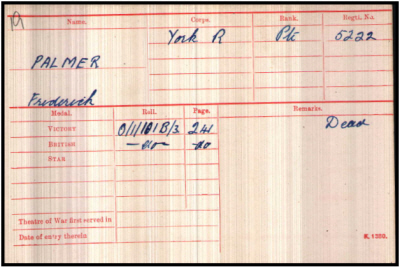 Name. Corps. Rank. Regtl. No.
York R Pte 5222
PALMER
Frederick
Medal. Roll. Page. Remarks.
VICTORY O/1/101B/3 241 Dead
BRITISH -do- do
STAR
Theatre of War first served in
Date of entry therein
K. 1380.